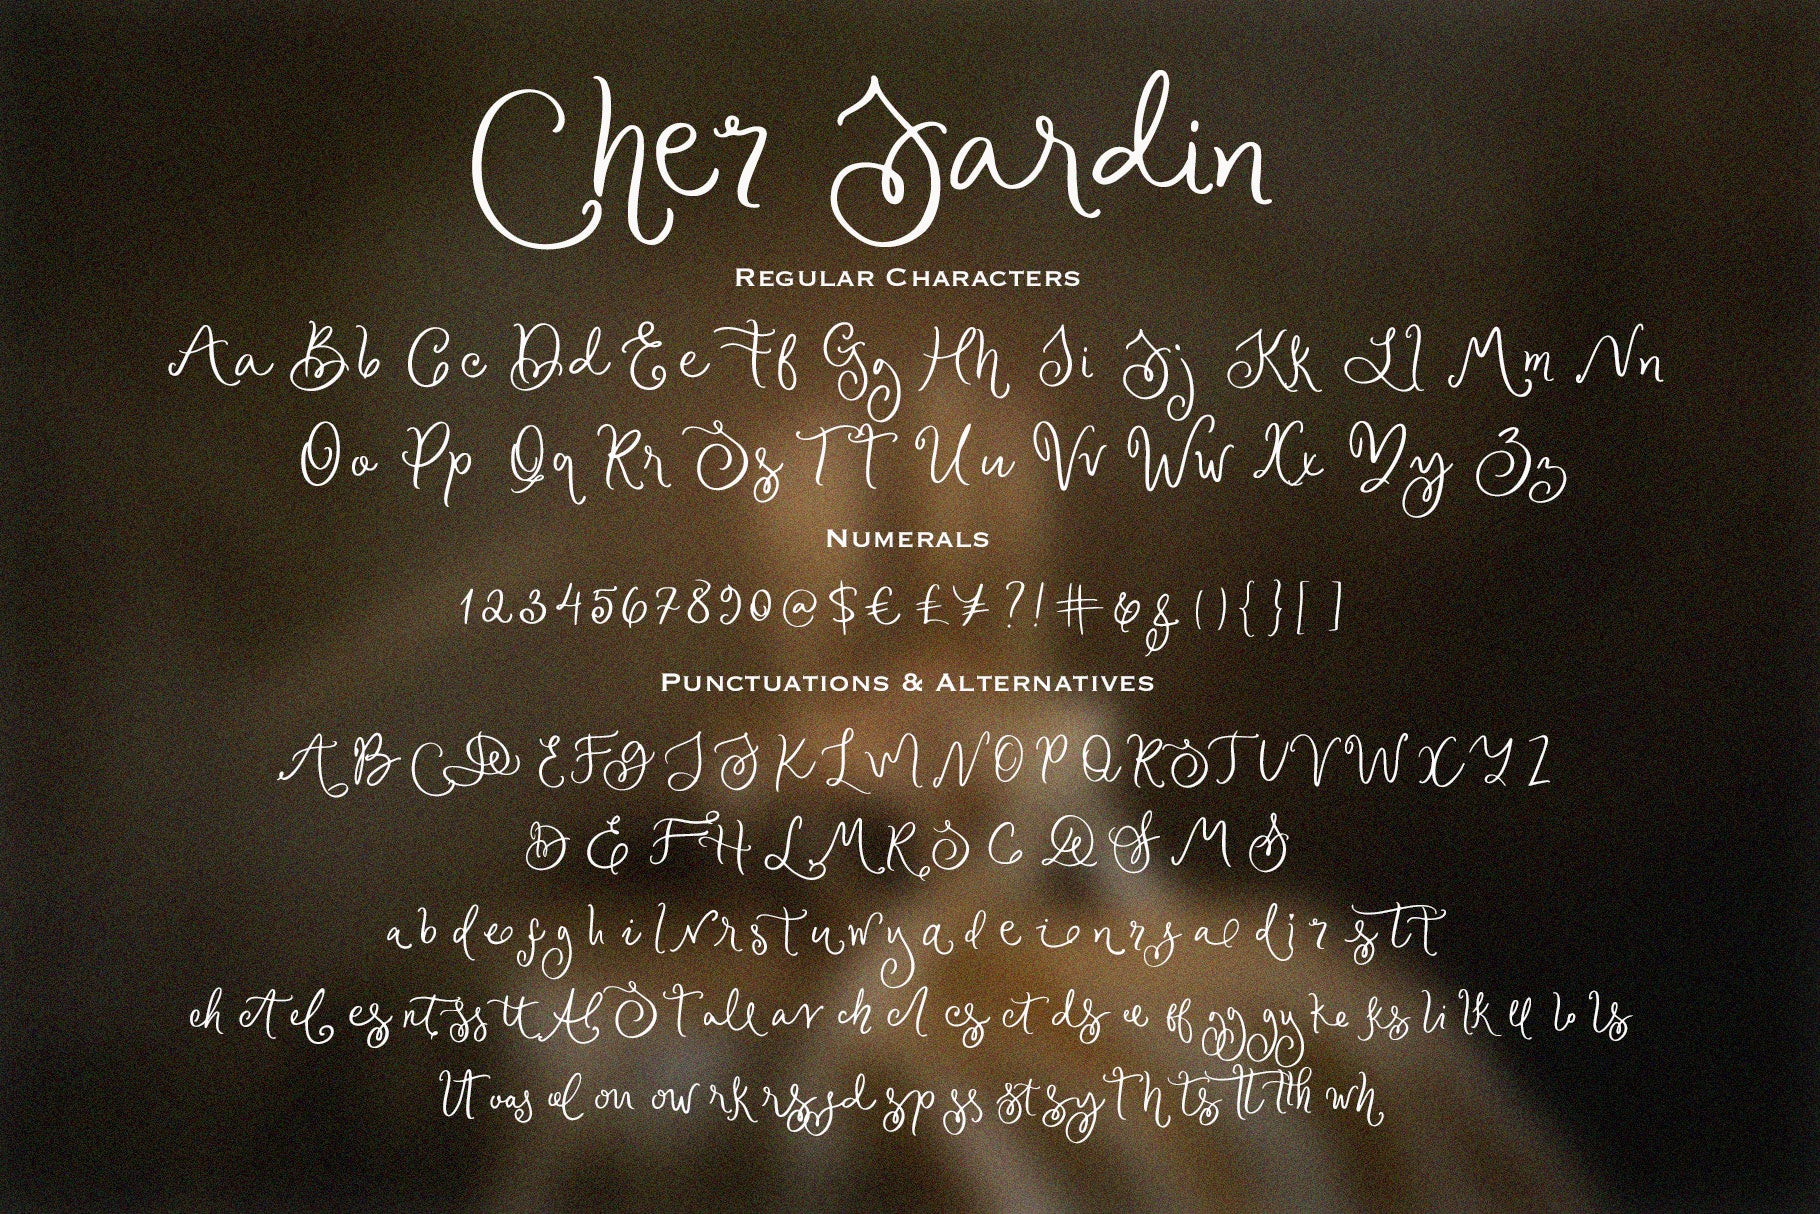 Cher Jardin
Regular Characters
Aa Bb Cc Dd Ee Ff Gg Hh Ii Jj Kk Ll Mm Nn
Oo Pp Qq Rr Ss Tt Uu Vv Ww Xx Yy Zz
Numerals
1234567890@$€£¥?!#&& (){}[]
Punctuations & Alternatives
A B C D E F G I J K L M N O P Q R S T U V W X Y Z
D E F H L M R S C D S M S
a b d e f g h i l v r s t u w y a d e i n r s a e d j r s t t
ch ct el es nt ss tt Al St all av ch cl cs ct ds ee ff gg gy ke ks li lk ll lo ls
lt oas ol on ow rk rs sd sp ss st sy th ts tt tth wh